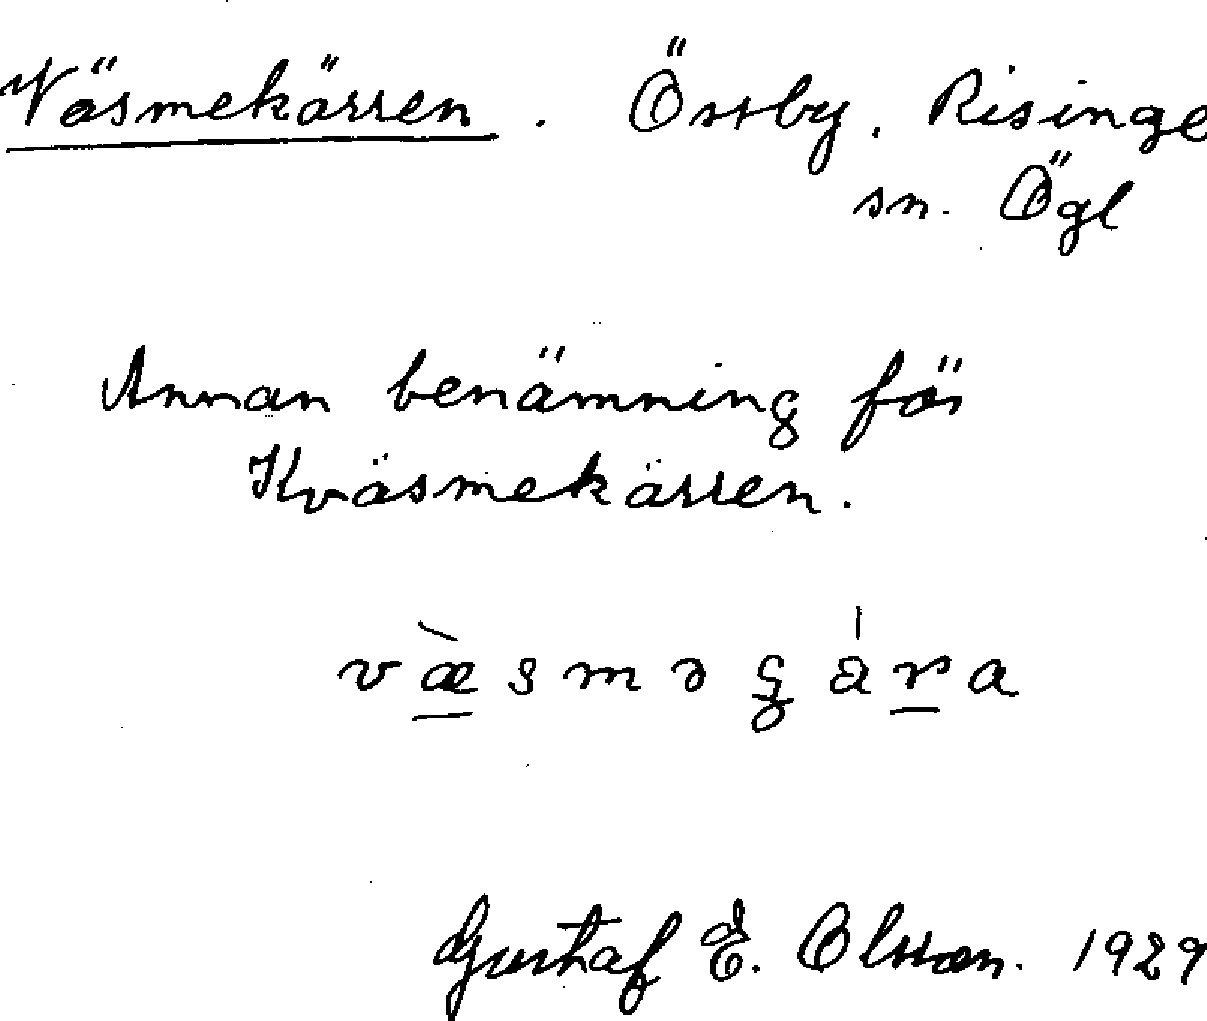 Väsmekärren. Östby, Risinge
sn. Ögl
Annan benämning för
Kväsmekärren.
væ̀sməgára
Gustaf E. Olsson. 1929